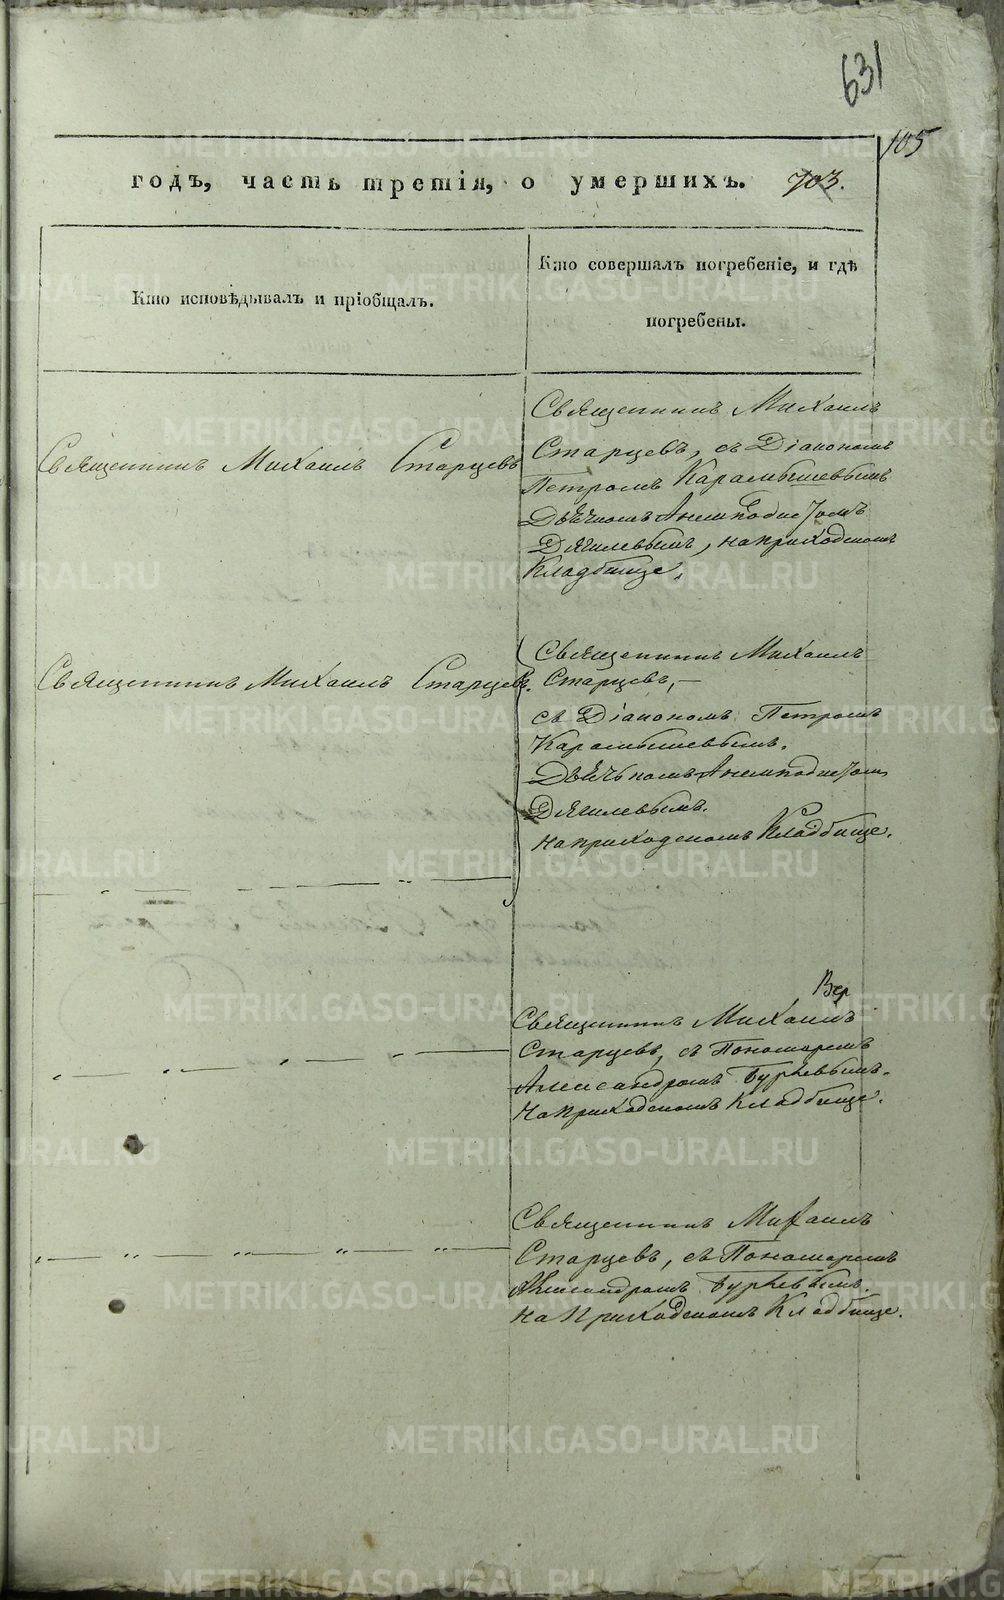 631
105
годъ, часть третія, о умершихъ. 703.
Кто исповѣдывалъ и пріобщалъ.
Кто совершалъ погребеніе, и гдѣ
погребены.
Священникъ Михаилъ Старцевъ
Священникъ Михаилъ
Старцевъ, съ Діакономъ
Петромъ Карамышевымъ
Дьячкомъ Анемподистомъ
Дягилевымъ, на приходскомъ
Кладбище.
Священникъ Михаилъ Старцевъ.
Священникъ Михаилъ
Старцевъ,—
съ Діакономъ Петромъ
Карамышевымъ.
Дьячькомъ Анемподистом
Дягилевымъ.
на приходскомъ Кладбище.
Вер
Священникъ Михаилъ
Старцевъ, съ Пономаремъ
Александромъ
на приходскомъ Кладбище.
Священникъ Михаилъ
Старцевъ, съ Пономаремъ
Александромъ
на Приходскомъ Кладбище.
METRIKI.GASO-URAL.RU